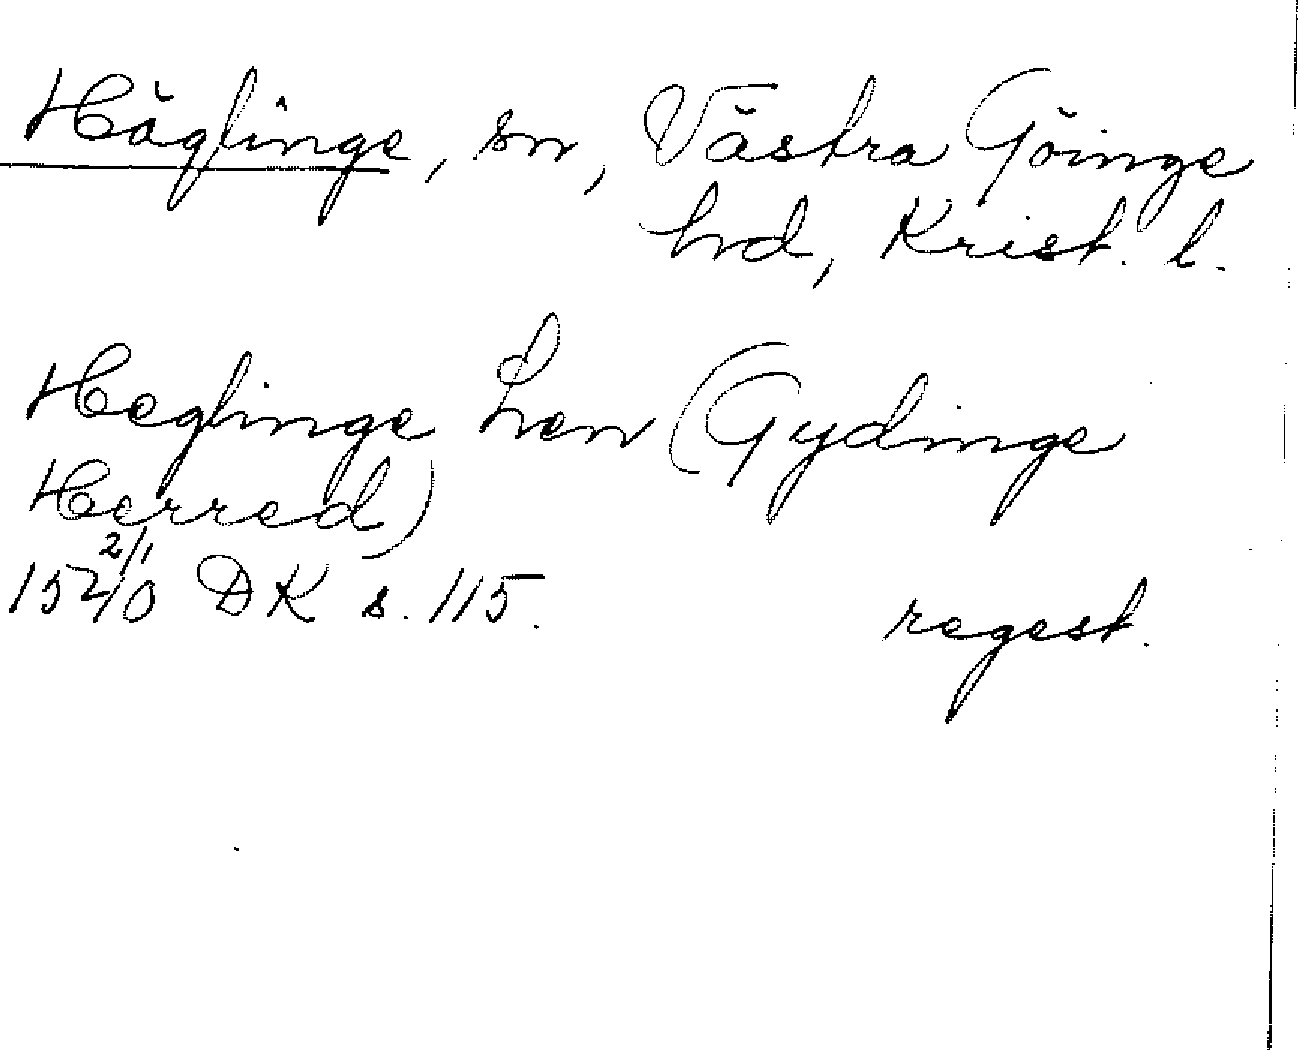 Häglinge, sn, Västra Göinge
hd, Krist. l.
Heglinge Len (Gydinge
Herred)
1520 2/1 DK s. 115.
regest.